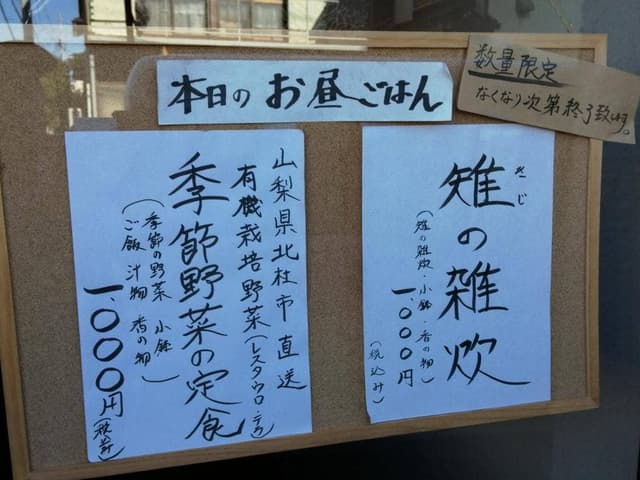 本日のお昼ごはん
数量限定
なくなり次第終了致します。
きじ
雉の雑炊
(雉の雑炊・小鉢・香の物)
一、000円
(税込み)
山梨県北杜市直送
有機栽培野菜(レスタウロ・テラ)
季節野菜の定食
(季節の野菜 小鉢
ご飯 汁物 香の物)
一、000円